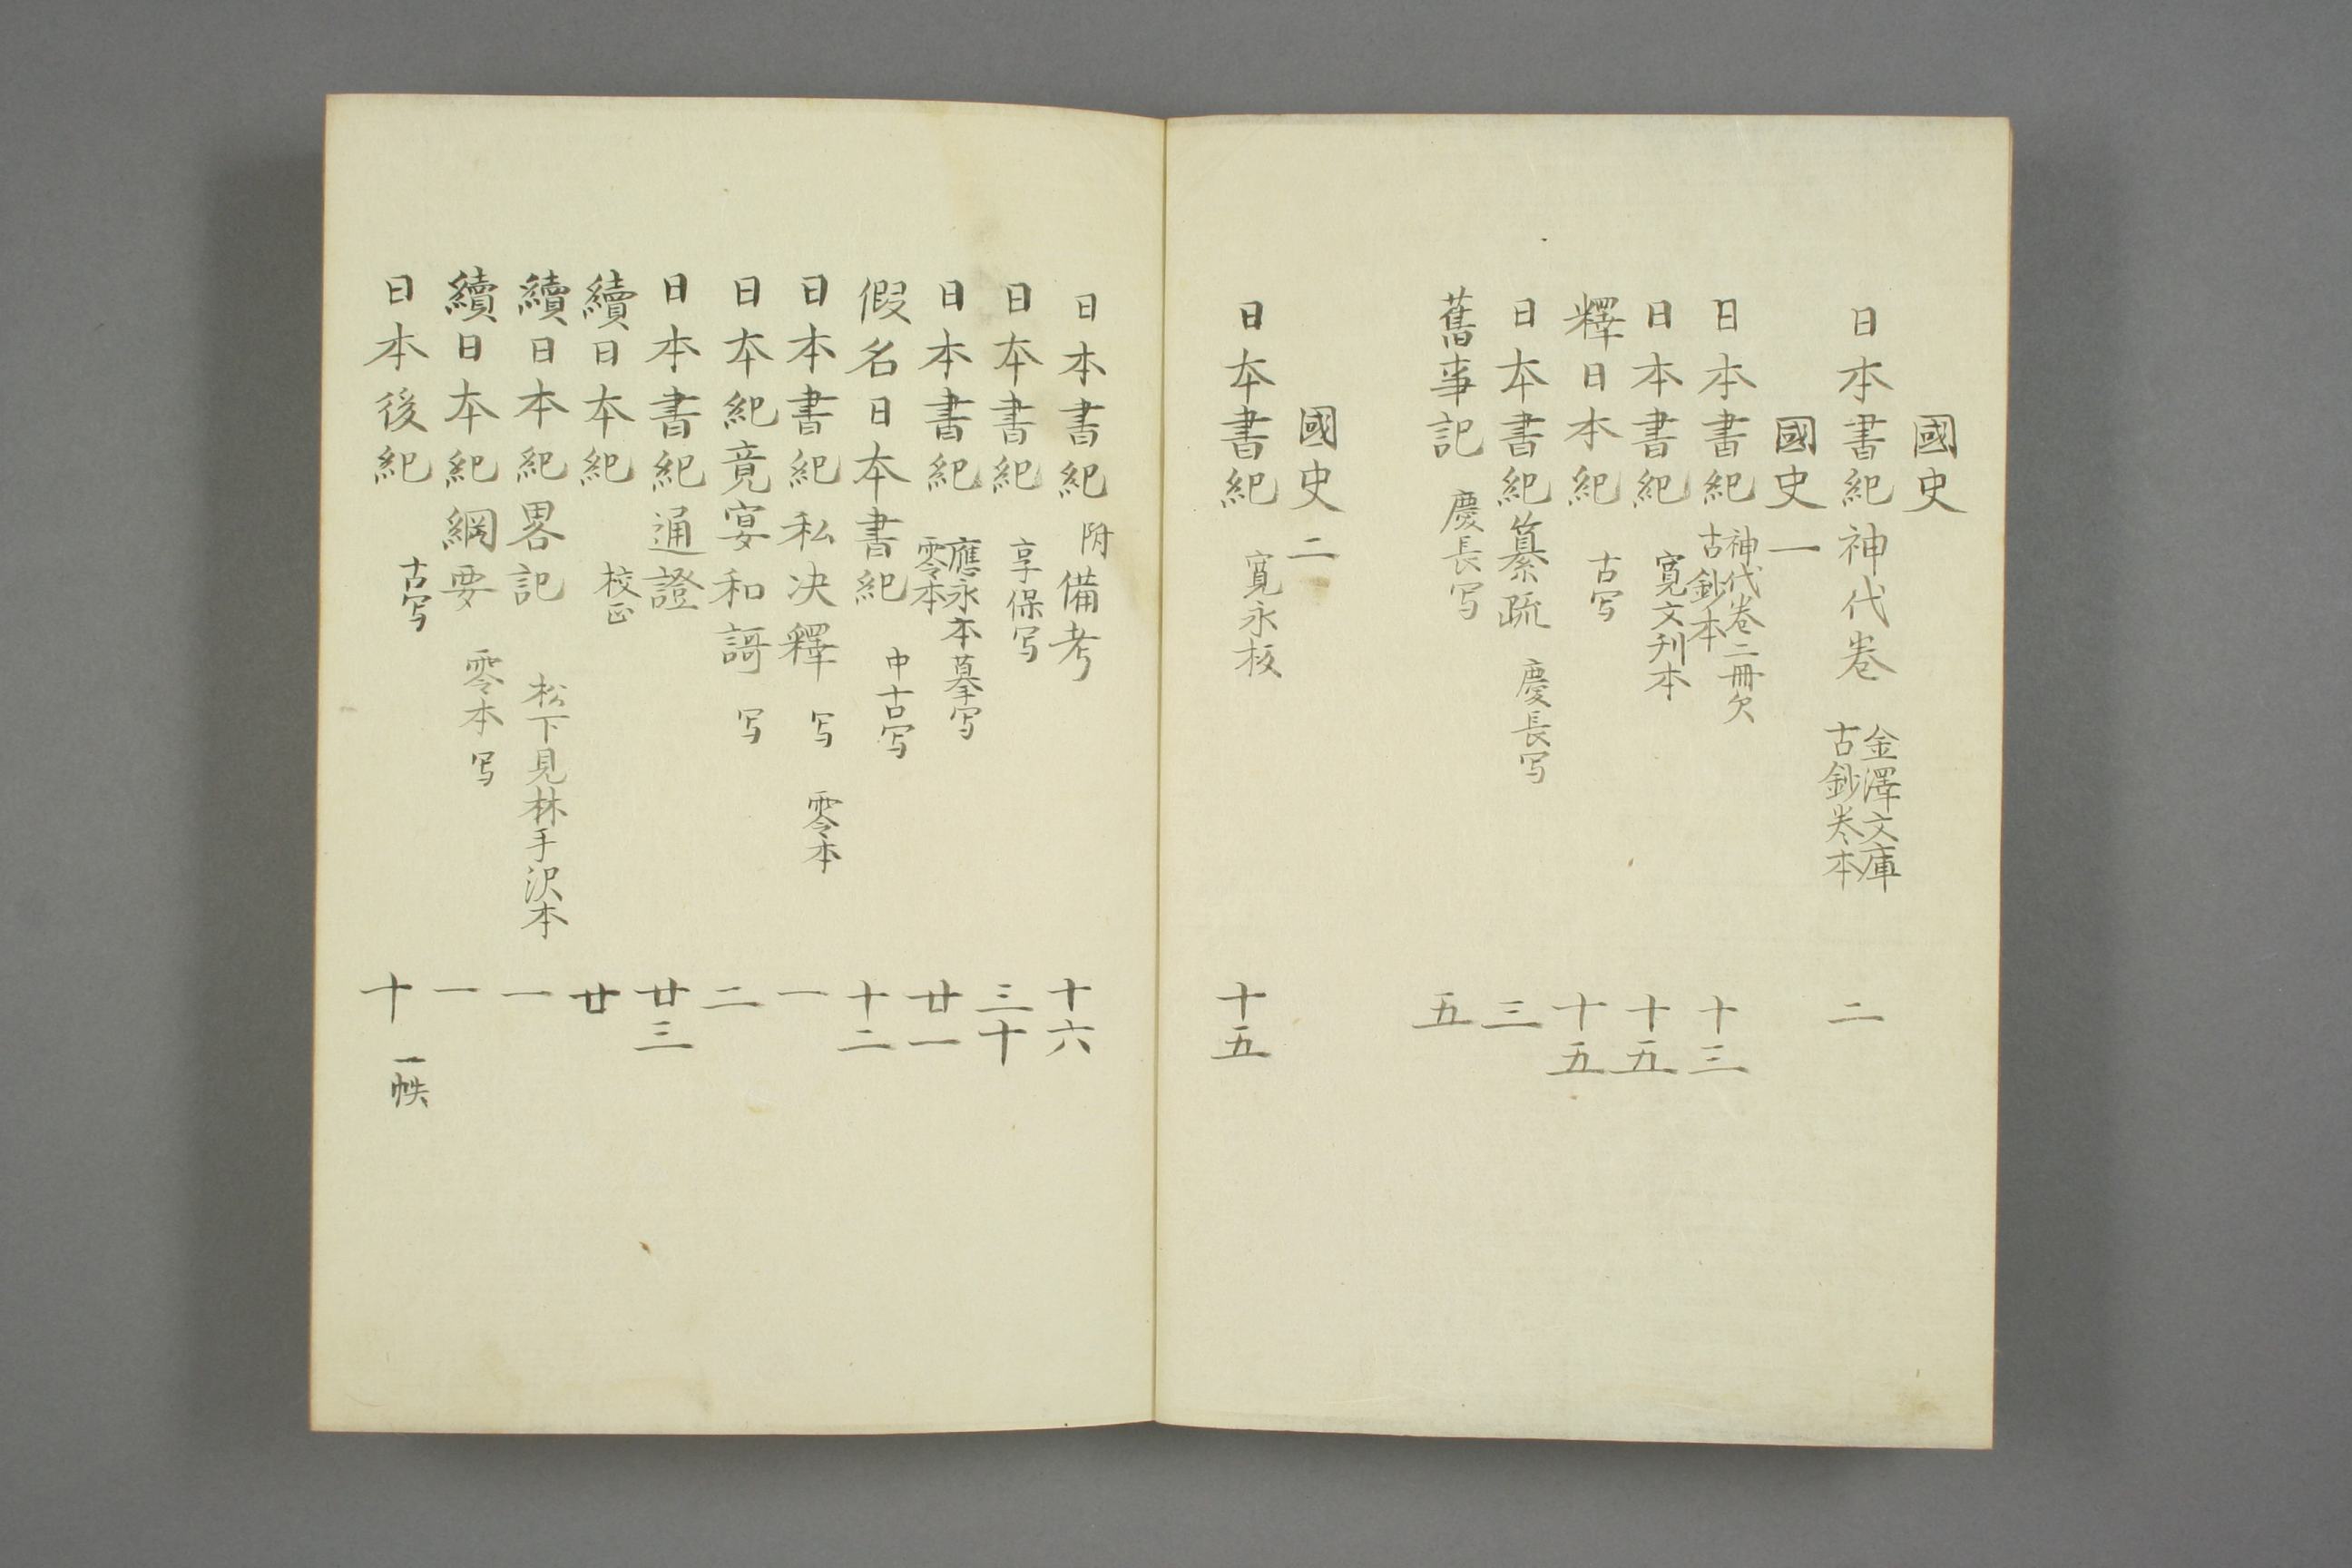 國史
日本書紀神代巻 金澤文庫古鈔巻本 二
國史一
日本書紀 神代巻二冊欠古鈔本 十三
日本書紀 寛文刋本 十五
釋日本紀 古写 十五
日本書紀纂疏 慶長写 三
舊事記 慶長写 五
國史二
日本書紀 寛永板 十五
日本書紀附備考 十六
日本書紀 享保写 三十
日本書紀 應永本摹写零本 廿一
假名日本書紀 中古写 十二
日本書紀私决釋 写 零本 一
日本紀竟宴和謌 写 二
日本書紀通證 廿三
續日本紀 校正 廿
續日本紀畧記 松下見林手沢本 一
續日本紀綱要 零本写 一
日本後紀 古写 十 一帙